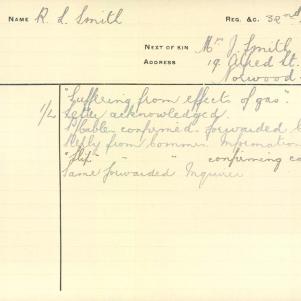 NAME R. L. Smith REG. &C. 32nd
NEXT OF KIN Mr J. Smith
ADDRESS 19 Alfred St.
Norwood
"Suffering from effects of gas".
1/2 Letter acknowledged.
Cable confirmed. forwarded
Reply from Commn. Information
"Slip" " " confirming ca
Same forwarded Inquirer